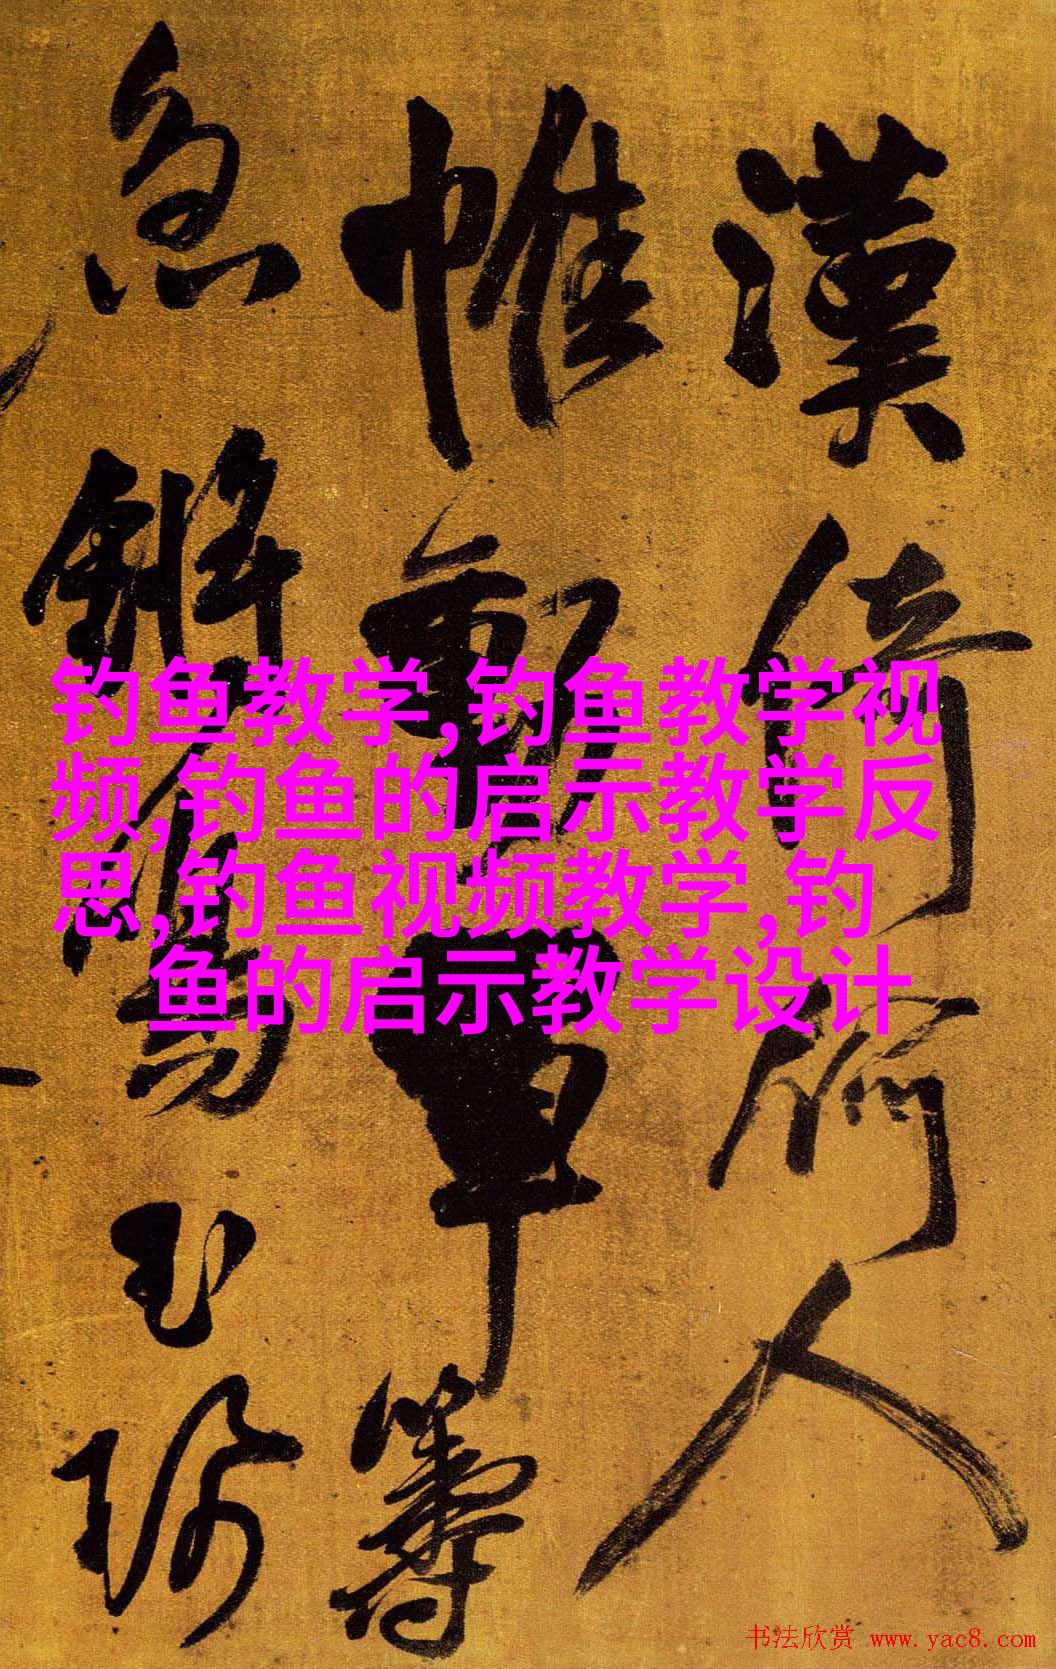 钓鱼教学,钓鱼教学视
频,钓鱼的启示教学反
思,钓鱼视频教学,钓
鱼的启示教学设计
漢倚人
帷籌
急鳴玉
书法欣赏 www.yac8.com